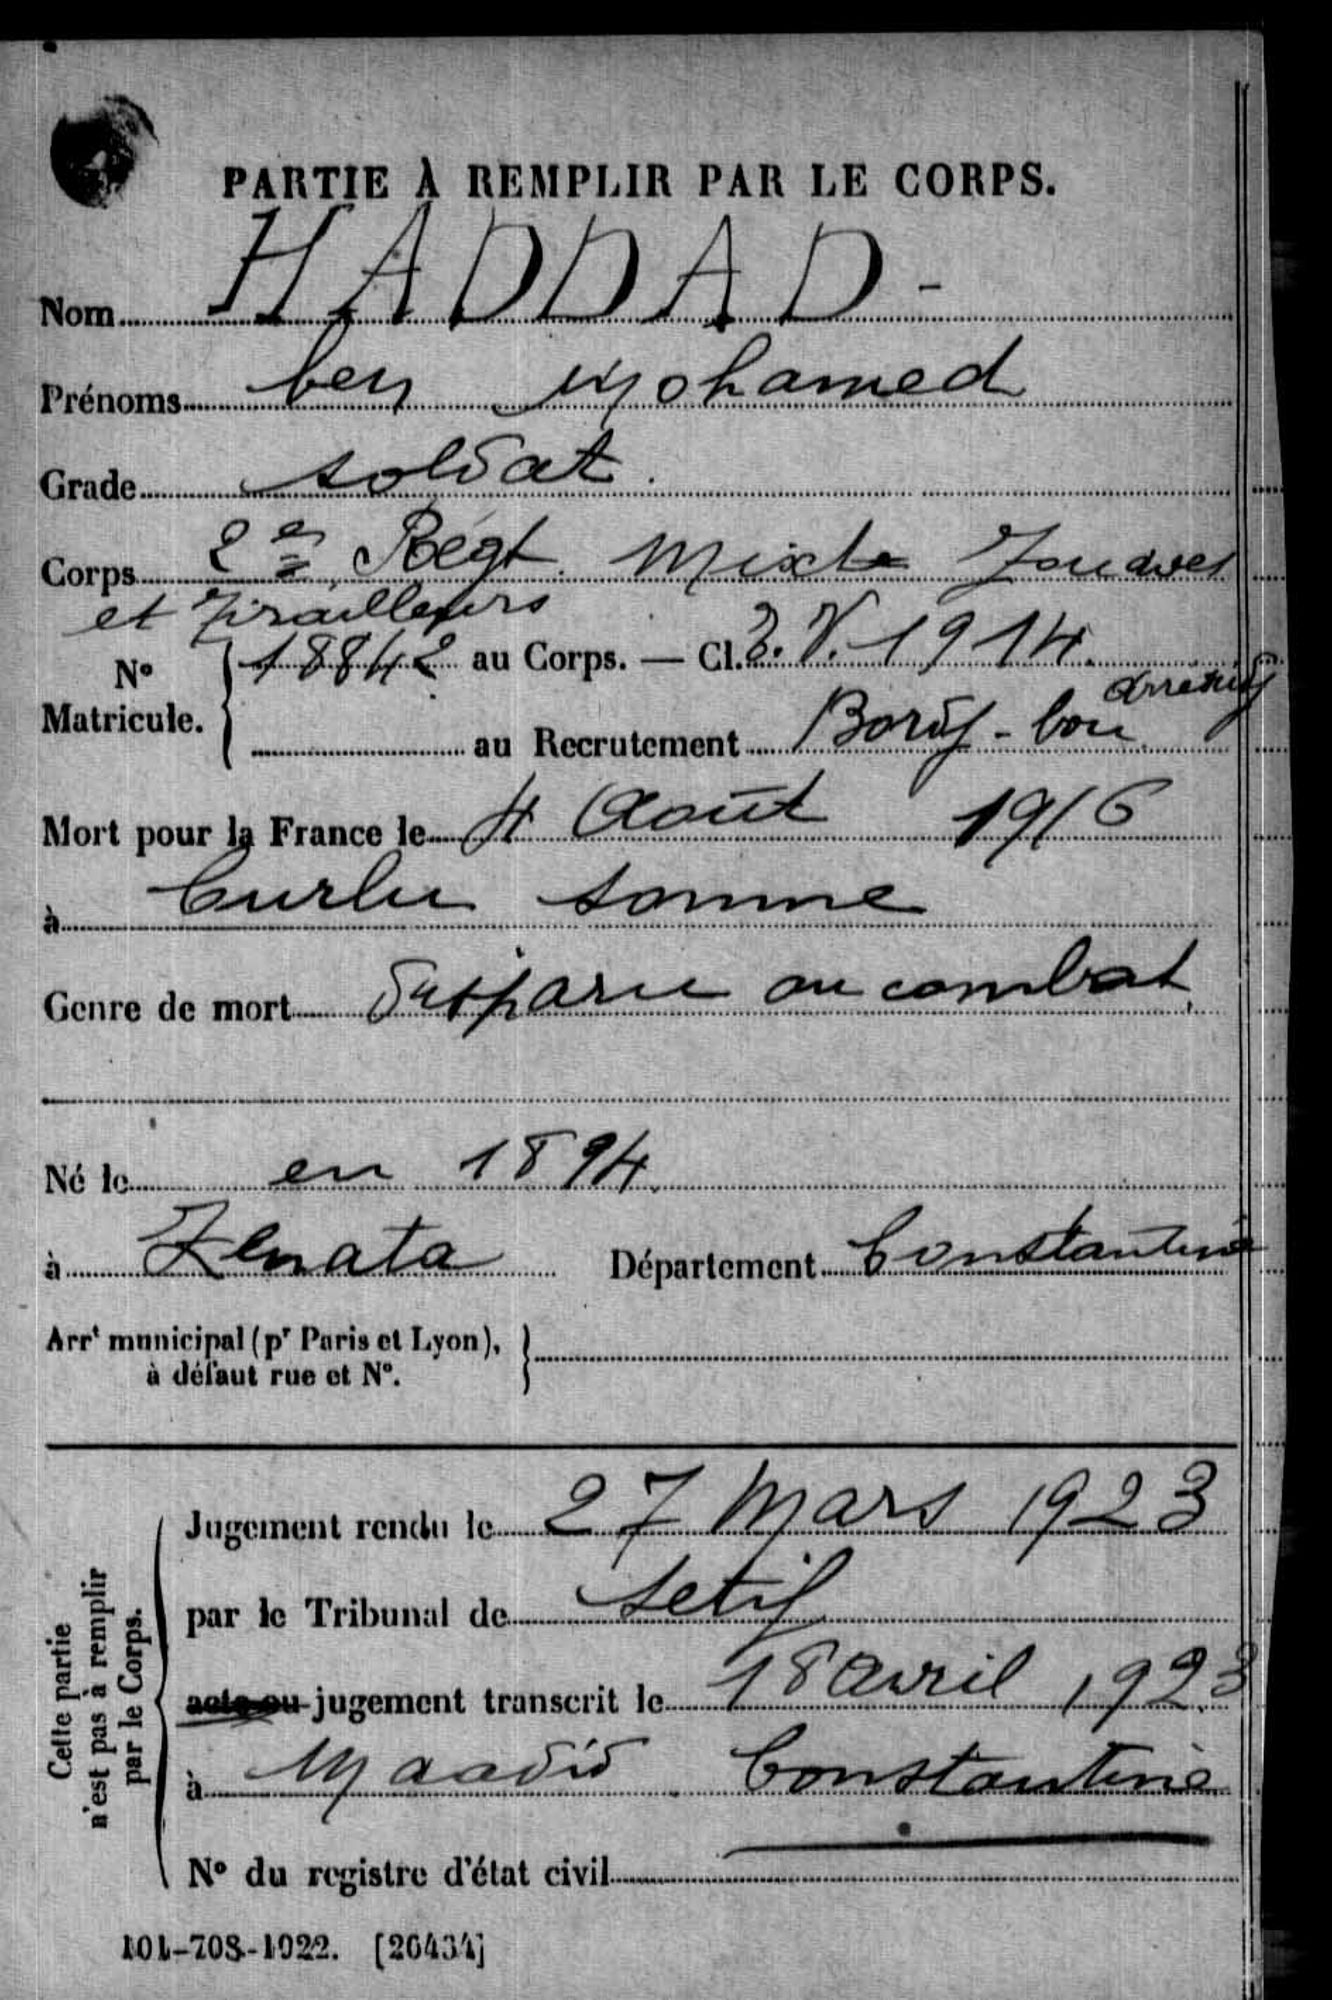 PARTIE À REMPLIR PAR LE CORPS.
Nom HADDAD -
Prénoms ben Mohamed
Grade soldat.
Corps 2e Régt Mixte Zouaves
et Tirailleurs
N° Matricule. 18842 au Corps. — Cl. E.V. 1914.
au Recrutement Bordj-bou Arreridj
Mort pour la France le 4 Août 1916
à Curlu Somme
Genre de mort Disparu au combat.
Né le en 1894.
à Zenata Département Constantine
Arrt municipal (pr Paris et Lyon),
à défaut rue et N°.
Cette partie
n'est pas à remplir
par le Corps.
Jugement rendu le 27 Mars 1923
par le Tribunal de Setif
acte ou jugement transcrit le 18 avril 1923
à Maadid Constantine
N° du registre d'état civil
101-708-1922. [26434]